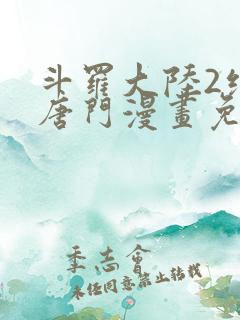 斗羅大陸2
唐門漫畫免
季志會
未经同意禁止转载